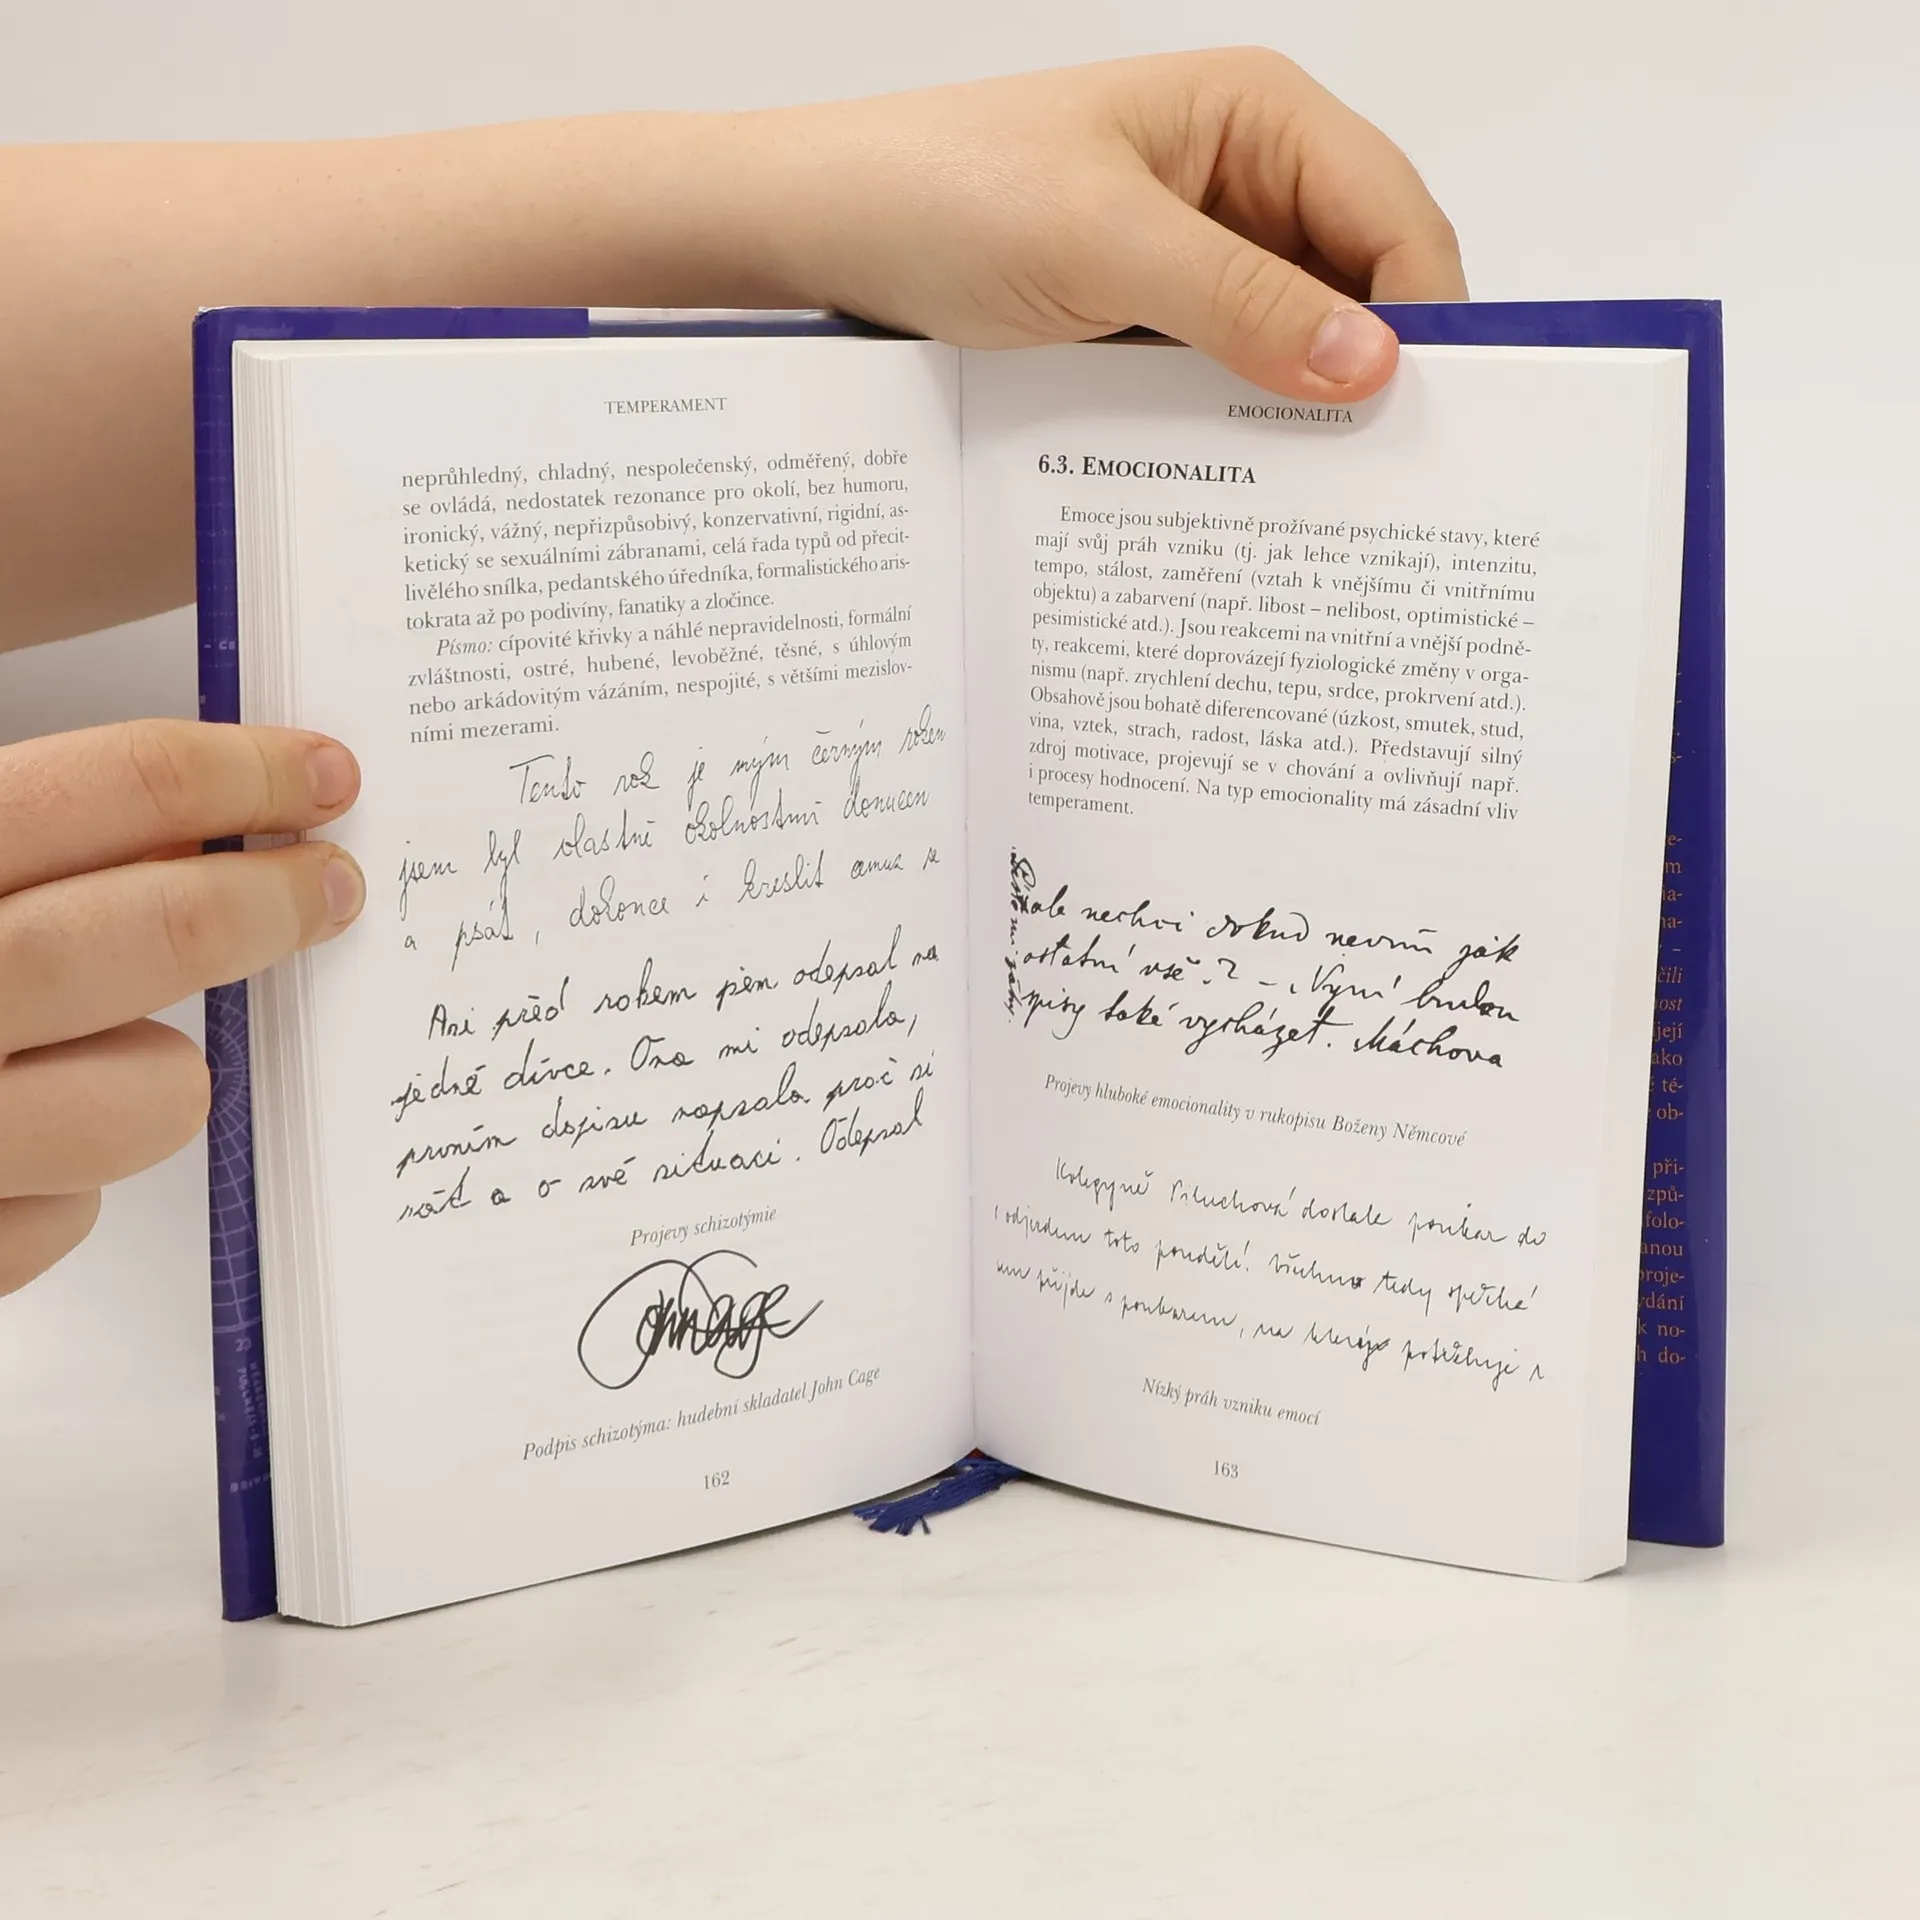 TEMPERAMENT
neprůhledný, chladný, nespolečenský, odměřený, dobře
se ovládá, nedostatek rezonance pro okolí, bez humoru,
ironický, vážný, nepřizpůsobivý, konzervativní, rigidní, as-
ketický se sexuálními zábranami, celá řada typů od přecit-
livělého snílka, pedantského úředníka, formalistického aris-
tokrata až po podivíny, fanatiky a zločince.
Písmo: cípovité křivky a náhlé nepravidelnosti, formální
zvláštnosti, ostré, hubené, levoběžné, těsné, s úhlovým
nebo arkádovitým vázáním, nespojité, s většími mezislov-
ními mezerami.
Tento rok je mým černým rokem
jsem byl vlastně okolnostmi donucen
a psát, dokonce i kreslit se
Ani před rokem jsem odepsal na
jedné dívce. Ona mi odepsala,
prvním dopisu napsala proč si
psát a o své situaci. Odepsal
Projevy schizotýmie
John Cage
Podpis schizotýma: hudební skladatel John Cage
162
EMOCIONALITA
6.3. EMOCIONALITA
Emoce jsou subjektivně prožívané psychické stavy, které
mají svůj práh vzniku (tj. jak lehce vznikají), intenzitu,
tempo, stálost, zaměření (vztah k vnějšímu či vnitřnímu
objektu) a zabarvení (např. libost – nelibost, optimistické –
pesimistické atd.). Jsou reakcemi na vnitřní a vnější podně-
ty, reakcemi, které doprovázejí fyziologické změny v orga-
nismu (např. zrychlení dechu, tepu, srdce, prokrvení atd.).
Obsahově jsou bohatě diferencované (úzkost, smutek, stud,
vina, vztek, strach, radost, láska atd.). Představují silný
zdroj motivace, projevují se v chování a ovlivňují např.
i procesy hodnocení. Na typ emocionality má zásadní vliv
temperament.
ale nechci dokud nevím jak
ostatní vše.? – Nyní budou
spisy také vycházet. Máchova
Projevy hluboké emocionality v rukopisu Boženy Němcové
Kolegyně dostala poukaz do
odjedem toto pondělí. Všichni tedy
přijde s poukazem, na který potřebuje
Nízký práh vzniku emocí
163